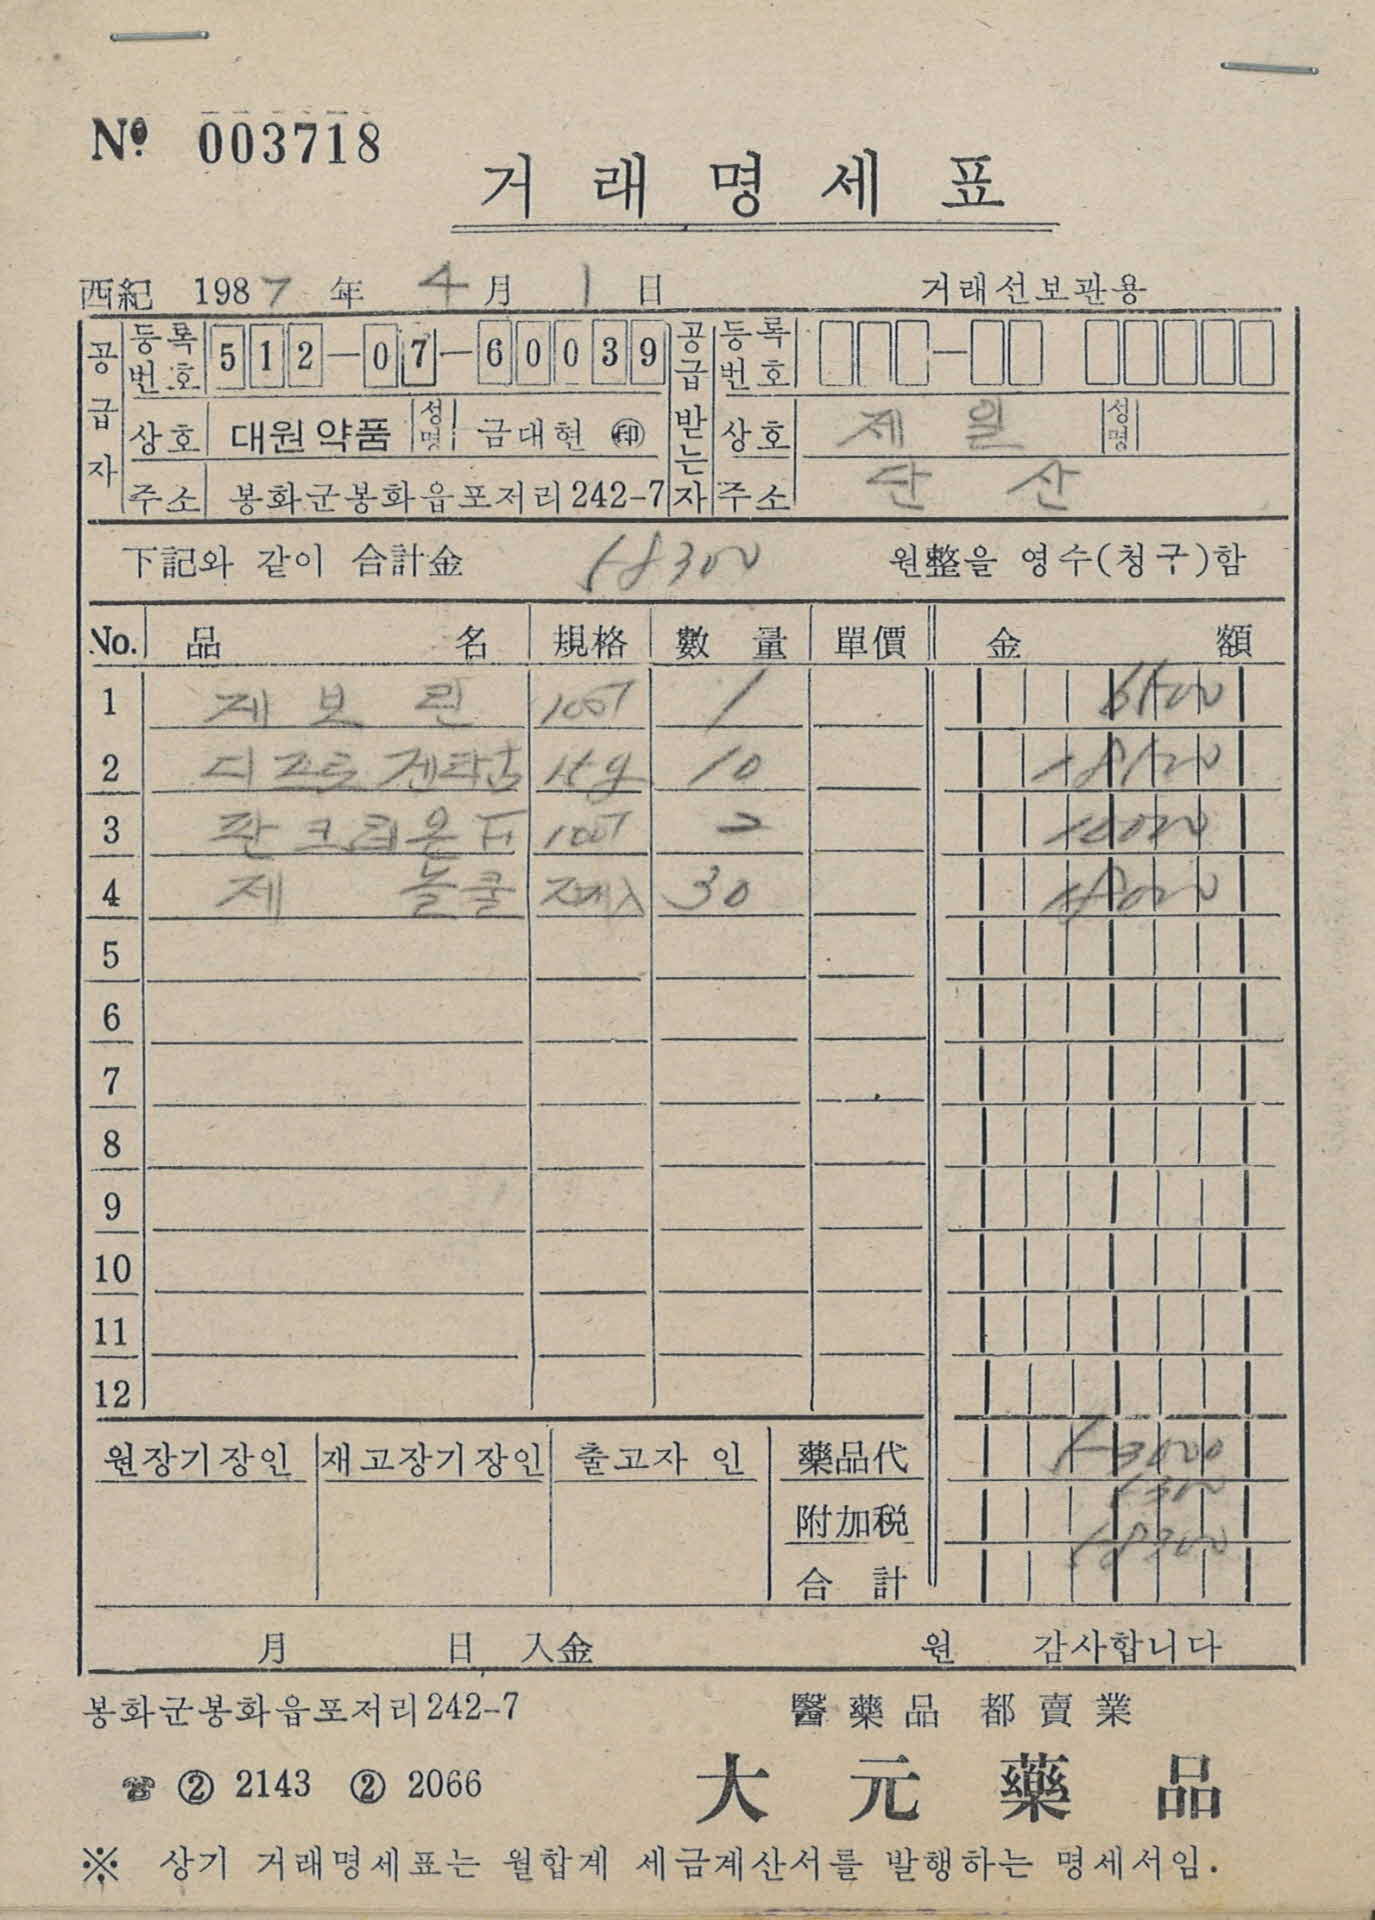 No 003718
거래명세표
西紀 1987 年 4 月 1 日 거래선보관용
공급자 등록번호 512-07-60039 공급받는자 등록번호
상호 대원약품 성명 금대현 ㊞ 상호 제일 성명
주소 봉화군봉화읍포저리242-7 주소 단산
下記와 같이 合計金 58300 원整을 영수(청구)함
No. 品名 規格 數量 單價 金額
1 게보린 100T 1
2 디프로겐타 15g 10
3 판크레온 100T 2
4 제놀쿨 30
5
6
7
8
9
10
11
12
원장기장인 재고장기장인 출고자 인 藥品代 53000
附加税 5300
合計 58300
月 日 入金 원 감사합니다
봉화군봉화읍포저리242-7 醫藥品 都賣業
☎ ② 2143 ② 2066 大元藥品
※ 상기 거래명세표는 월합계 세금계산서를 발행하는 명세서임.